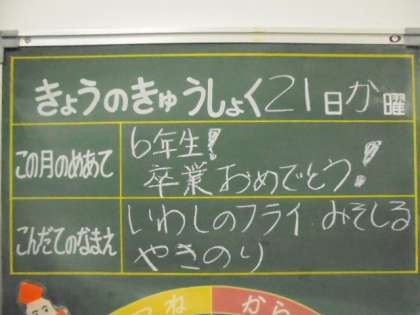 きょうのきゅうしょく21日か曜
この月のめあて
6年生!
卒業おめでとう!
こんだてのなまえ
いわしのフライ みそしる
やきのり
つね から